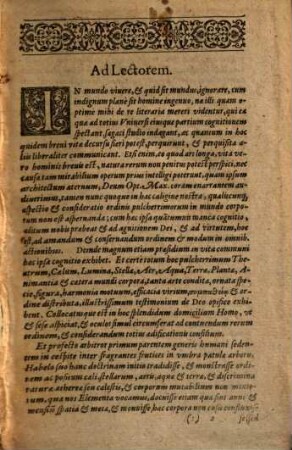 Ad Lectorem.
IN mundo vivere, & quid sit mundus, ignorare, cum
indignum planè sit homine ingenuo, na illi quam
optime mihi de re literaria mereri videntur, qui ea
quæ ad totius Vniversi eiusque partium cognitionem
spectant, sagaci studio indagant, ac quantum in hoc
quidem breni vitæ decursu fieri potest, perquirunt, & perquisita a-
liis liberaliter communicant. Etsi enim, eo quod ars longa, vita ve-
ro homini brevis est, natura rerum non penitus potest perspici, nec
causæ tam mirabilium operum prius intelligi poterunt, quam ipsum
architectum æternum, Deum Opt. Max. coram enarrantem au-
diverimus, tamen nunc quoque in hac caligine nostra, qualiscunq;
aspectio & consideratio ordinis pulcherrimorum in mundo corpo-
rum non est aspernanda: cum hæc ipsa quatumvis manca cognitio, a-
ditum nobis præbeat & ad agnitionem Dei, & ad virtutem, hoc
est, ad amandum & conservandum ordinem & modum in omnib.
actionibus. Deinde magnum etiam præsidium ac vita communi
hæc ipsa cognitio exhibet. Et certè rerum hoc pulcherrimum The-
atrum, Cælum, Lumina, Stellæ, Aër, Aqua, Terra, Planta, A-
nimantia & cætera mundi corpora, tanta arte condita, ornata speci-
e, figura, harmonia motuum, efficacia virium,
ordine distributa, illustrissimum testimonium de Deo opifice exhi-
bent. Collocatque est in hoc splendidum domicilium Homo, vt
& sese aspiciat, & oculis simul circumferat ad contuendum rerum
ordinem, & considerandum tectæ ædificationis consilium.
Et profectò arbitror primum parentem generis humani seden-
tem in cespite inter fragrantes fruticis in umbra patulæ arboris,
Habelo suo hanc doctrinam initio tradidisse, & monstrasse ordi-
nem ac positum cæli, stellarum, aëris, aquæ & terræ, & discrimina
naturæ æthereæ seu cælestis, & corporum mutabilium non mixto-
rum, quæ nos Elementa vocamus, docuisse etiam quæ sint anni &
mensium spatia & metæ, & monuisse hæc corpora non casu
(?) 2